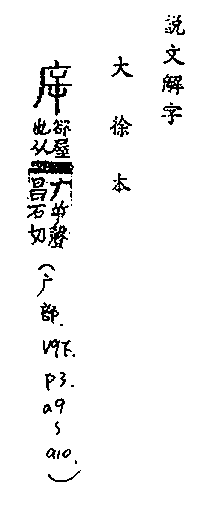 說文解字
大徐本
㡿
卻屋
也从
广屰聲
昌石切
(广部. V9下. P3. a9~a10.)